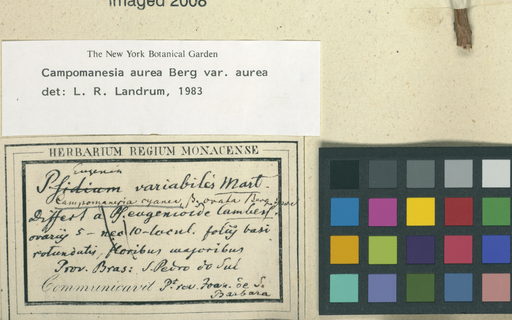 Imaged 2008
The New York Botanical Garden
Campomanesia aurea Berg var. aurea
det: L. R. Landrum, 1983
HERBARIUM REGIUM MONACENSE
Eugenia
Psidium variabiles Mart.
Campomanesia cyanea, β, ovata Berg
Differt a Ps. eugenioide Cambess.
ovariis 5- nec 10-locul. foliis basi
rotundatis, floribus majoribus
Prov. Bras: S. Pedro do Sul
Communicavit Pt. rev. Joan. de S.
Barbara